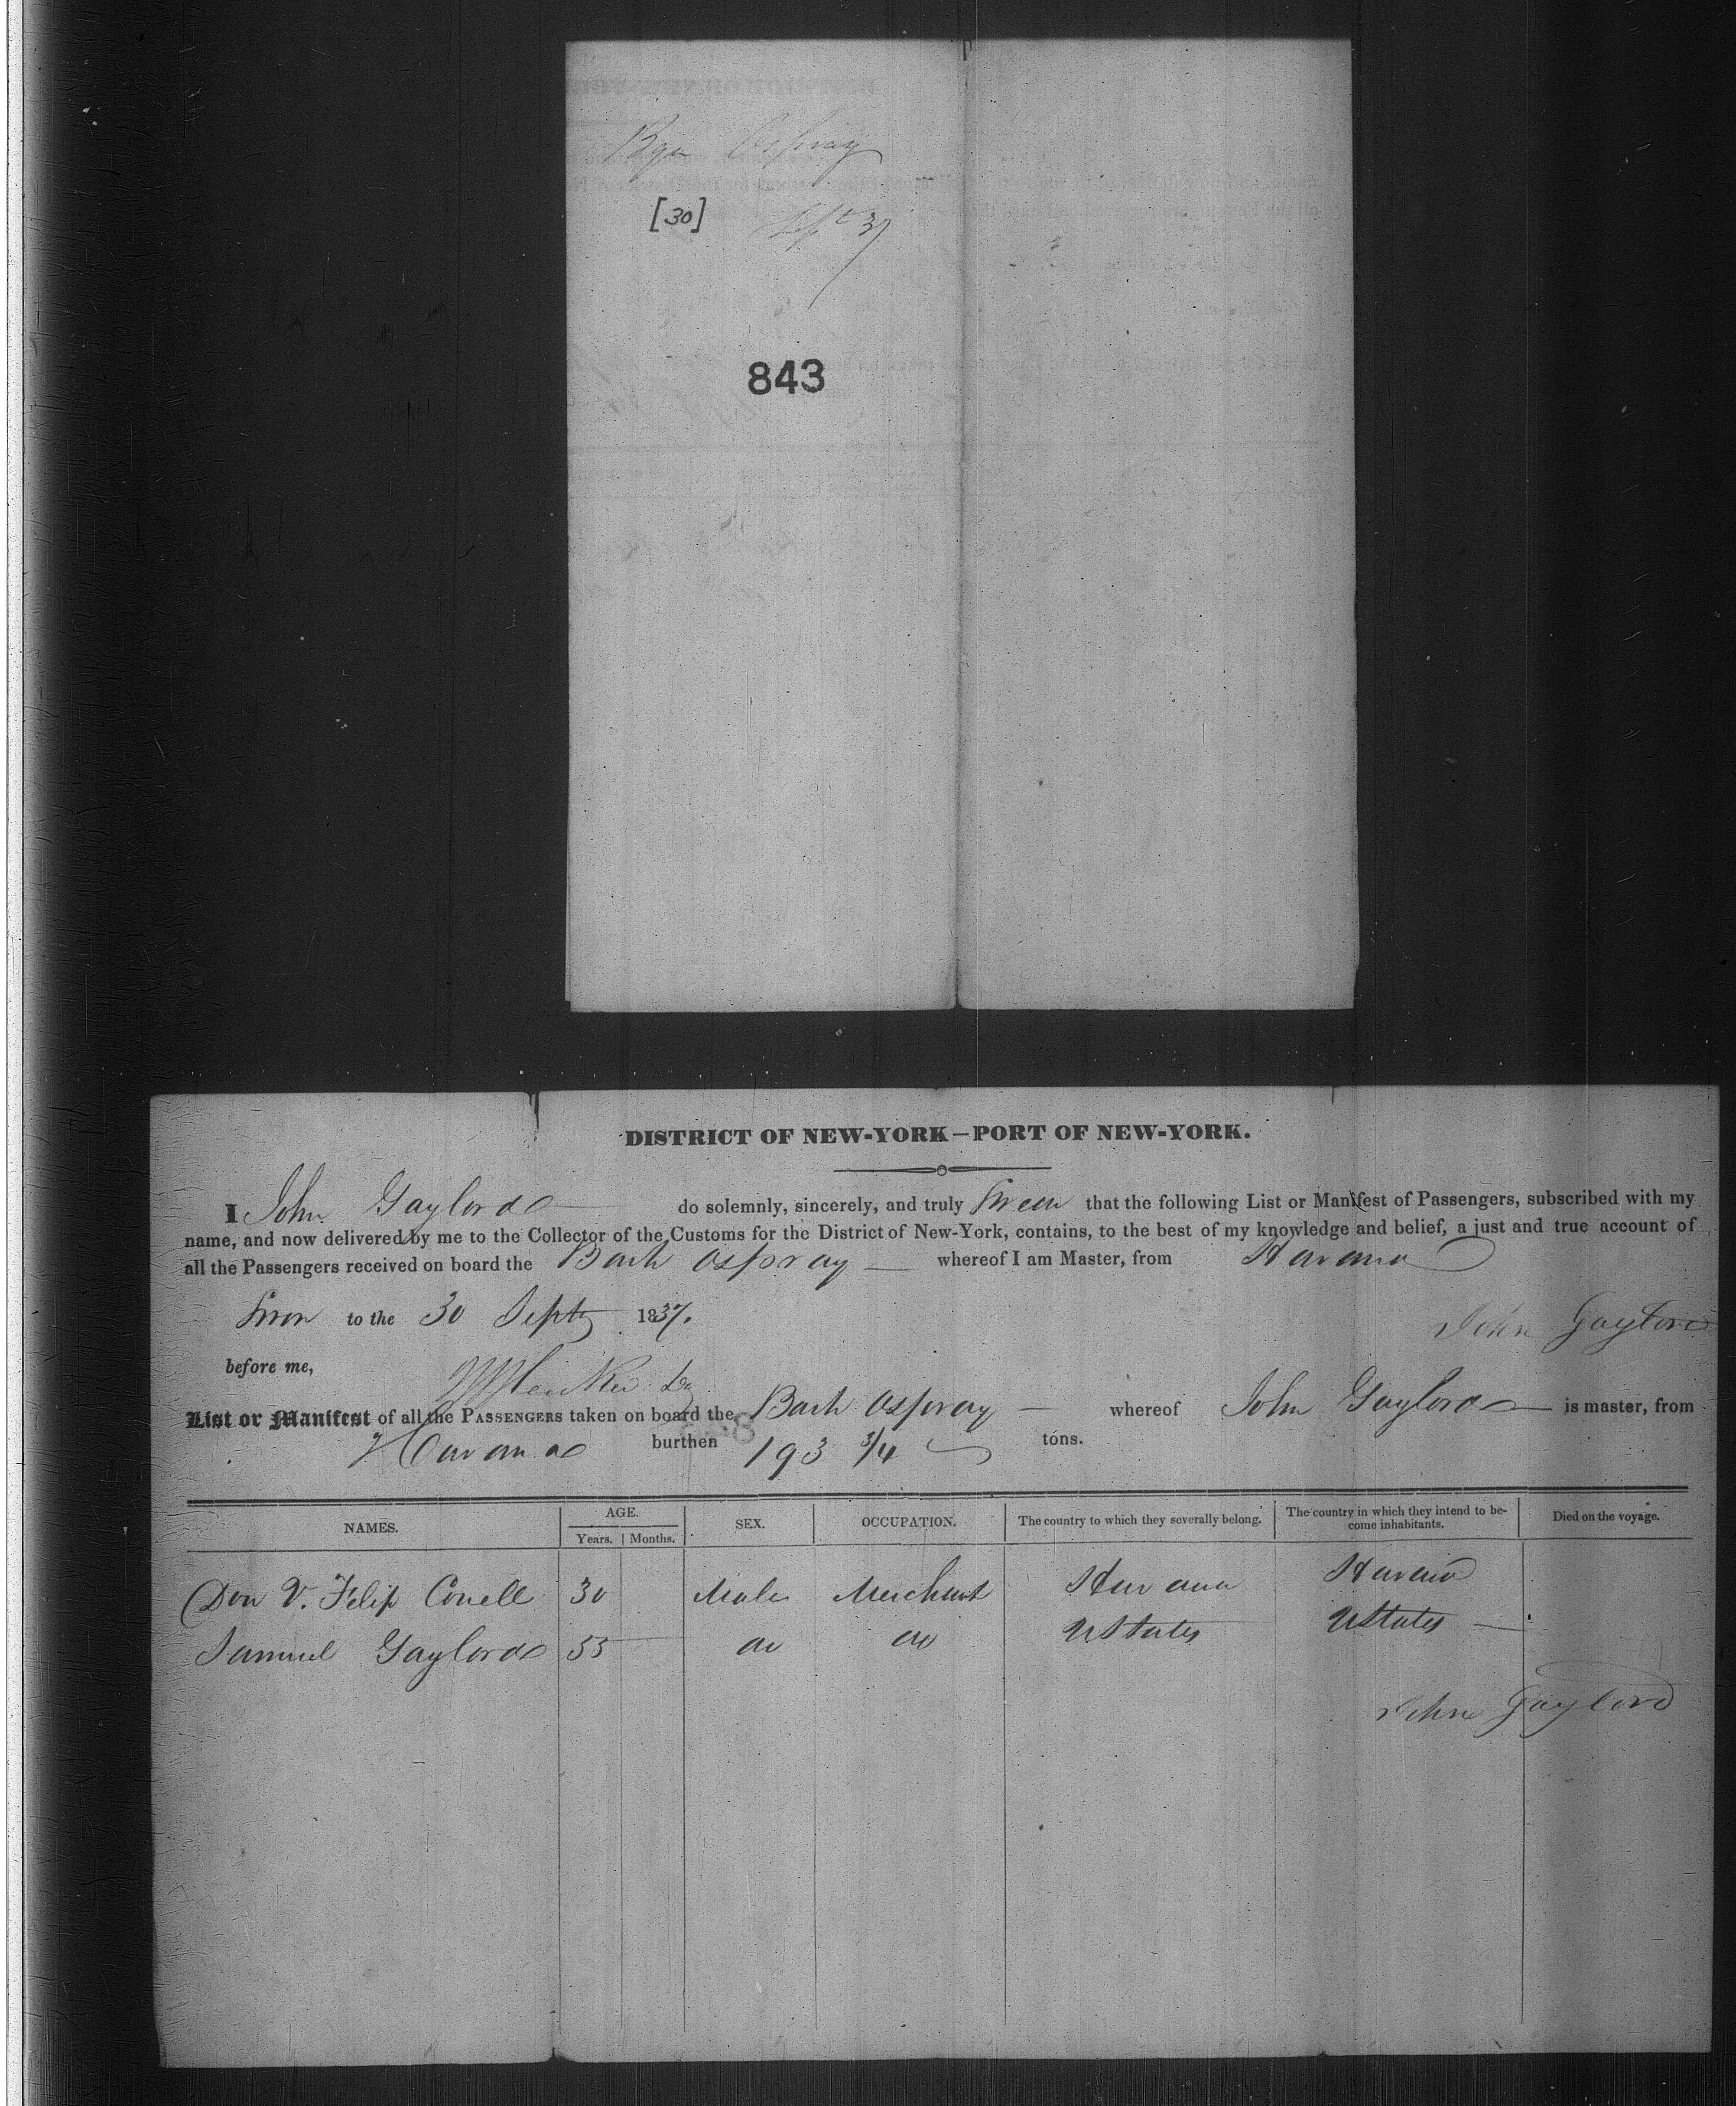 Bqn Ospray
[30] Sept 37
843
DISTRICT OF NEW-YORK—PORT OF NEW-YORK.
I John Gaylord do solemnly, sincerely, and truly Swear that the following List or Manifest of Passengers, subscribed with my
name, and now delivered by me to the Collector of the Customs for the District of New-York, contains, to the best of my knowledge and belief, a just and true account of
all the Passengers received on board the Bark Ospray whereof I am Master, from Havana
Sworn to the 30 Septr 1837.
John Gaylord
before me,
List or Manifest of all the PASSENGERS taken on board the Bark Ospray whereof John Gaylord is master, from
Havana burthen 193 3/4 tons.
NAMES. AGE. SEX. OCCUPATION. The country to which they severally belong. The country in which they intend to be-
come inhabitants. Died on the voyage.
Years. Months.
Don V. Felip Conell 30 Male Merchant Havana Havana
Samuel Gaylord 55 do do UStates UStates
John Gaylord